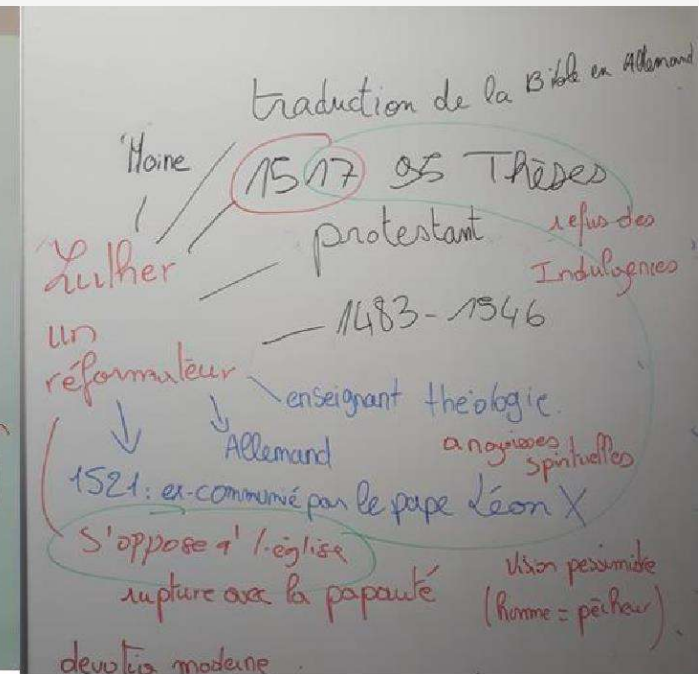 traduction de la Bible en Allemand
Moine
1517 95 Thèses
protestant
refus des
Indulgences
Luther
un
réformateur
1483-1546
enseignant théologie.
Allemand
angoisses
spirituelles
1521: ex-communié par le pape Léon X
S'oppose à l'église
rupture avec la papauté
vision pessimiste
(homme = pécheur)
devotio moderne.